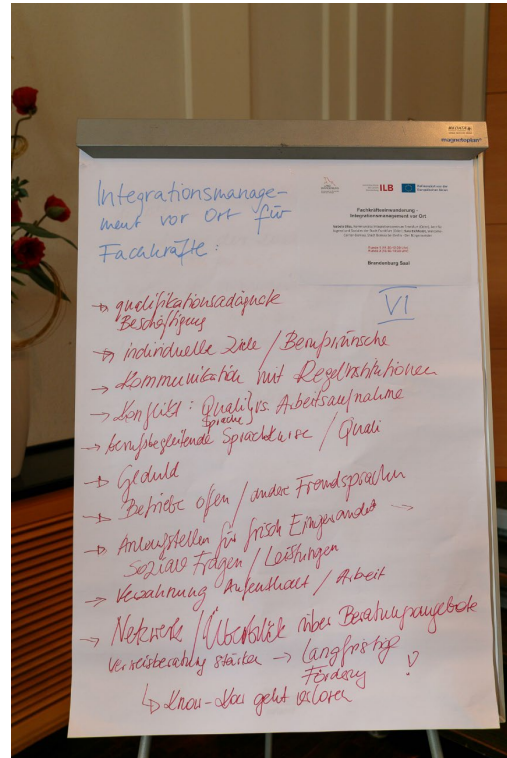 magnetoplan
ILB
Fachkräfteeinwanderung -
Integrationsmanagement vor Ort
Brandenburg Saal
Integrationsmanage-
ment vor Ort für
Fachkräfte:
VI
→ qualifikationsadäquate
Beschäftigung
→ individuelle Ziele / Berufswünsche
→ Kommunikation mit Regelinstitutionen
→ Konflikt: Quali vs. Arbeitsaufnahme
Sprache
→ berufsbegleitende Sprachkurse / Quali
→ Geduld
→ Betriebe offen / andere Fremdsprachen
→ Anlaufstellen für frisch Eingewanderte →
Soziale Fragen / Leistungen
→ Verzahnung Aufenthalt / Arbeit
→ Netzwerk / Überblick über Beratungsangebote
Verweisberatung stärken → Langfristige
Förderung !
↳ Know-How geht verloren